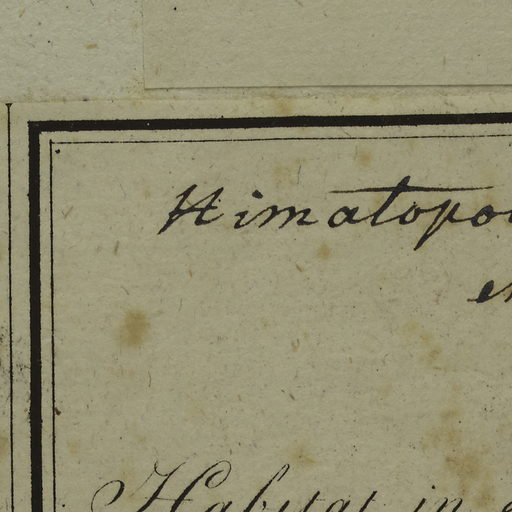 Himatopo
e
Habitat in e